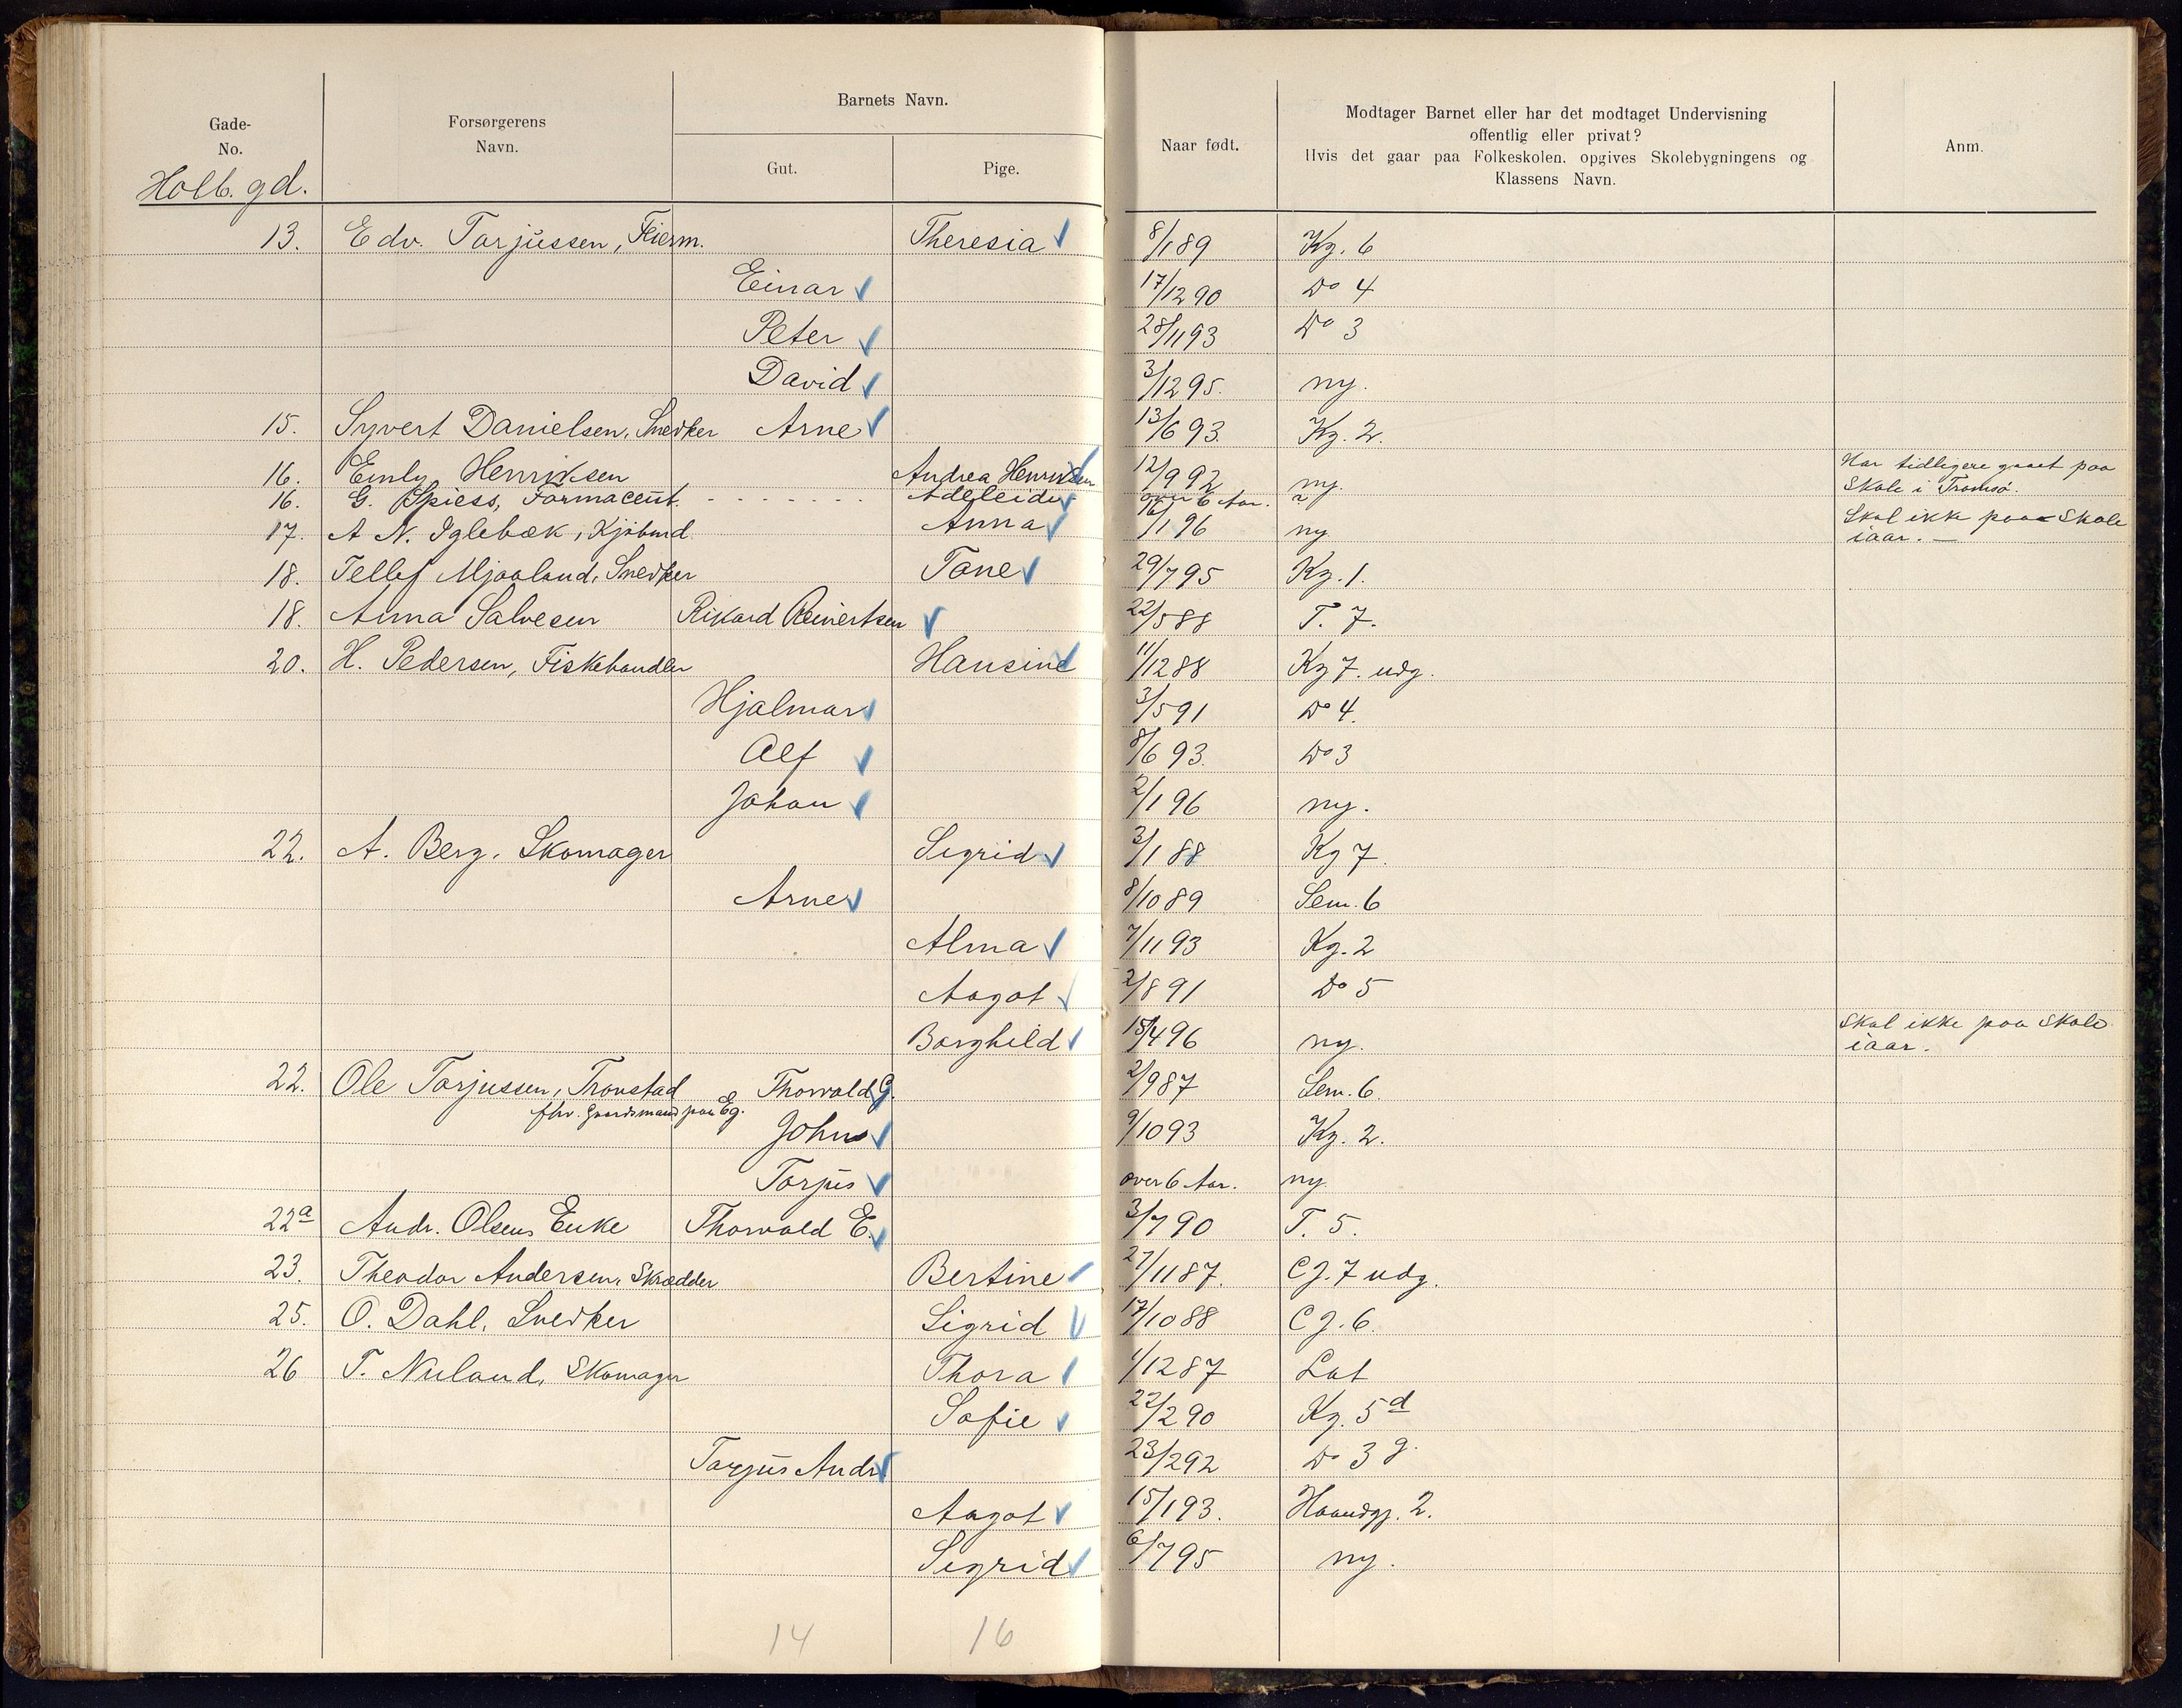 Gade-
No.
Forsørgerens
Navn.
Barnets Navn.
Gut.
Pige.
Naar født.
Modtager Barnet eller har det modtaget Undervisning
offentlig eller privat?
Hvis det gaar paa Folkeskolen, opgives Skolebygningens og
Klassens Navn.
Anm.
Holb. gd.
13. Edv. Tarjussen, Theresia 8/1 89 Kg. 6
Einar 17/12 90 Do 4
Peter 28/11 93 Do 3
David 3/12 95. ny.
15. Syvert Danielsen, Snedker Arne 13/6 93. Kg. 2.
16. Emly Henriksen Andrea Henriksen 12/9 92 ny. Har tidligere gaaet paa
Skole i Tromsø.
16. G. Spiess, Farmaceut. Adeleide over 6 Aar. ?
17. A N. Iglebæk, Kjøbmd. Anna /1 96 ny Skal ikke paa Skole
iaar. —
18. Tellef Mjaaland, Snedker Tane 29/7 95 Kg. 1.
18. Anna Salvesen Rikard Reinertsen 22/5 88 T. 7.
20. H. Pedersen, Fiskehandler Hansine 11/12 88 Kg 7. udg.
Hjalmar 3/5 91 Do 4.
Alf 8/6 93. Do 3
Johan 2/1 96 ny.
22. A. Berg. Skomager Sigrid 3/1 88 Kg 7
Arne 8/10 89 Sem. 6
Alma 7/11 93 Kg. 2
Aagot 2/8 91 Do 5
Borghild 15/4 96 ny. Skal ikke paa Skole
iaar.
22. Ole Tarjussen, Tronstad Thorvald G. 2/9 87 Sem. 6.
fhv. Gaardsmand paa Eg.
John 9/10 93 Kg. 2.
Tarjus over 6 Aar. ny.
22a Andr. Olsens Enke Thorvald E. 3/7 90 T. 5.
23. Theodor Andersen, Skrædder Bertine 27/11 87. CJ. 7 udg.
25. O. Dahl, Snedker Sigrid 17/10 88 CJ. 6.
26 T. Nuland, Skomager Thora 1/12 87 Lat
Sofie 22/2 90 Kg. 5d
Tarjus Andr 23/2 92 Do 3 g.
Aagot 15/1 93. Haandgj. 2.
Sigrid 6/7 95 ny.
14 16